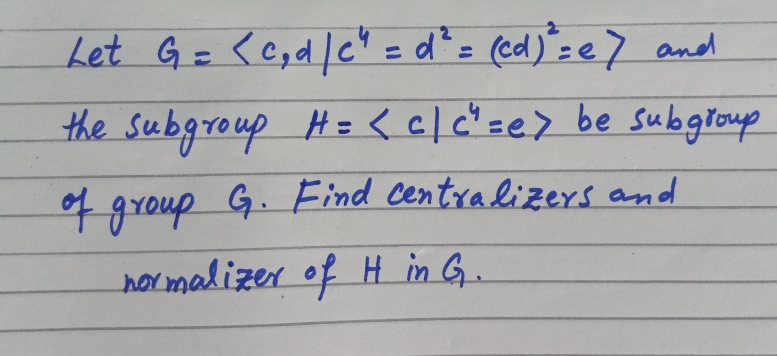 Let G = < c, d | c⁴ = d² = (cd)² = e > and
the subgroup H = < c | c⁴ = e > be subgroup
of group G. Find centralizers and
normalizer of H in G.